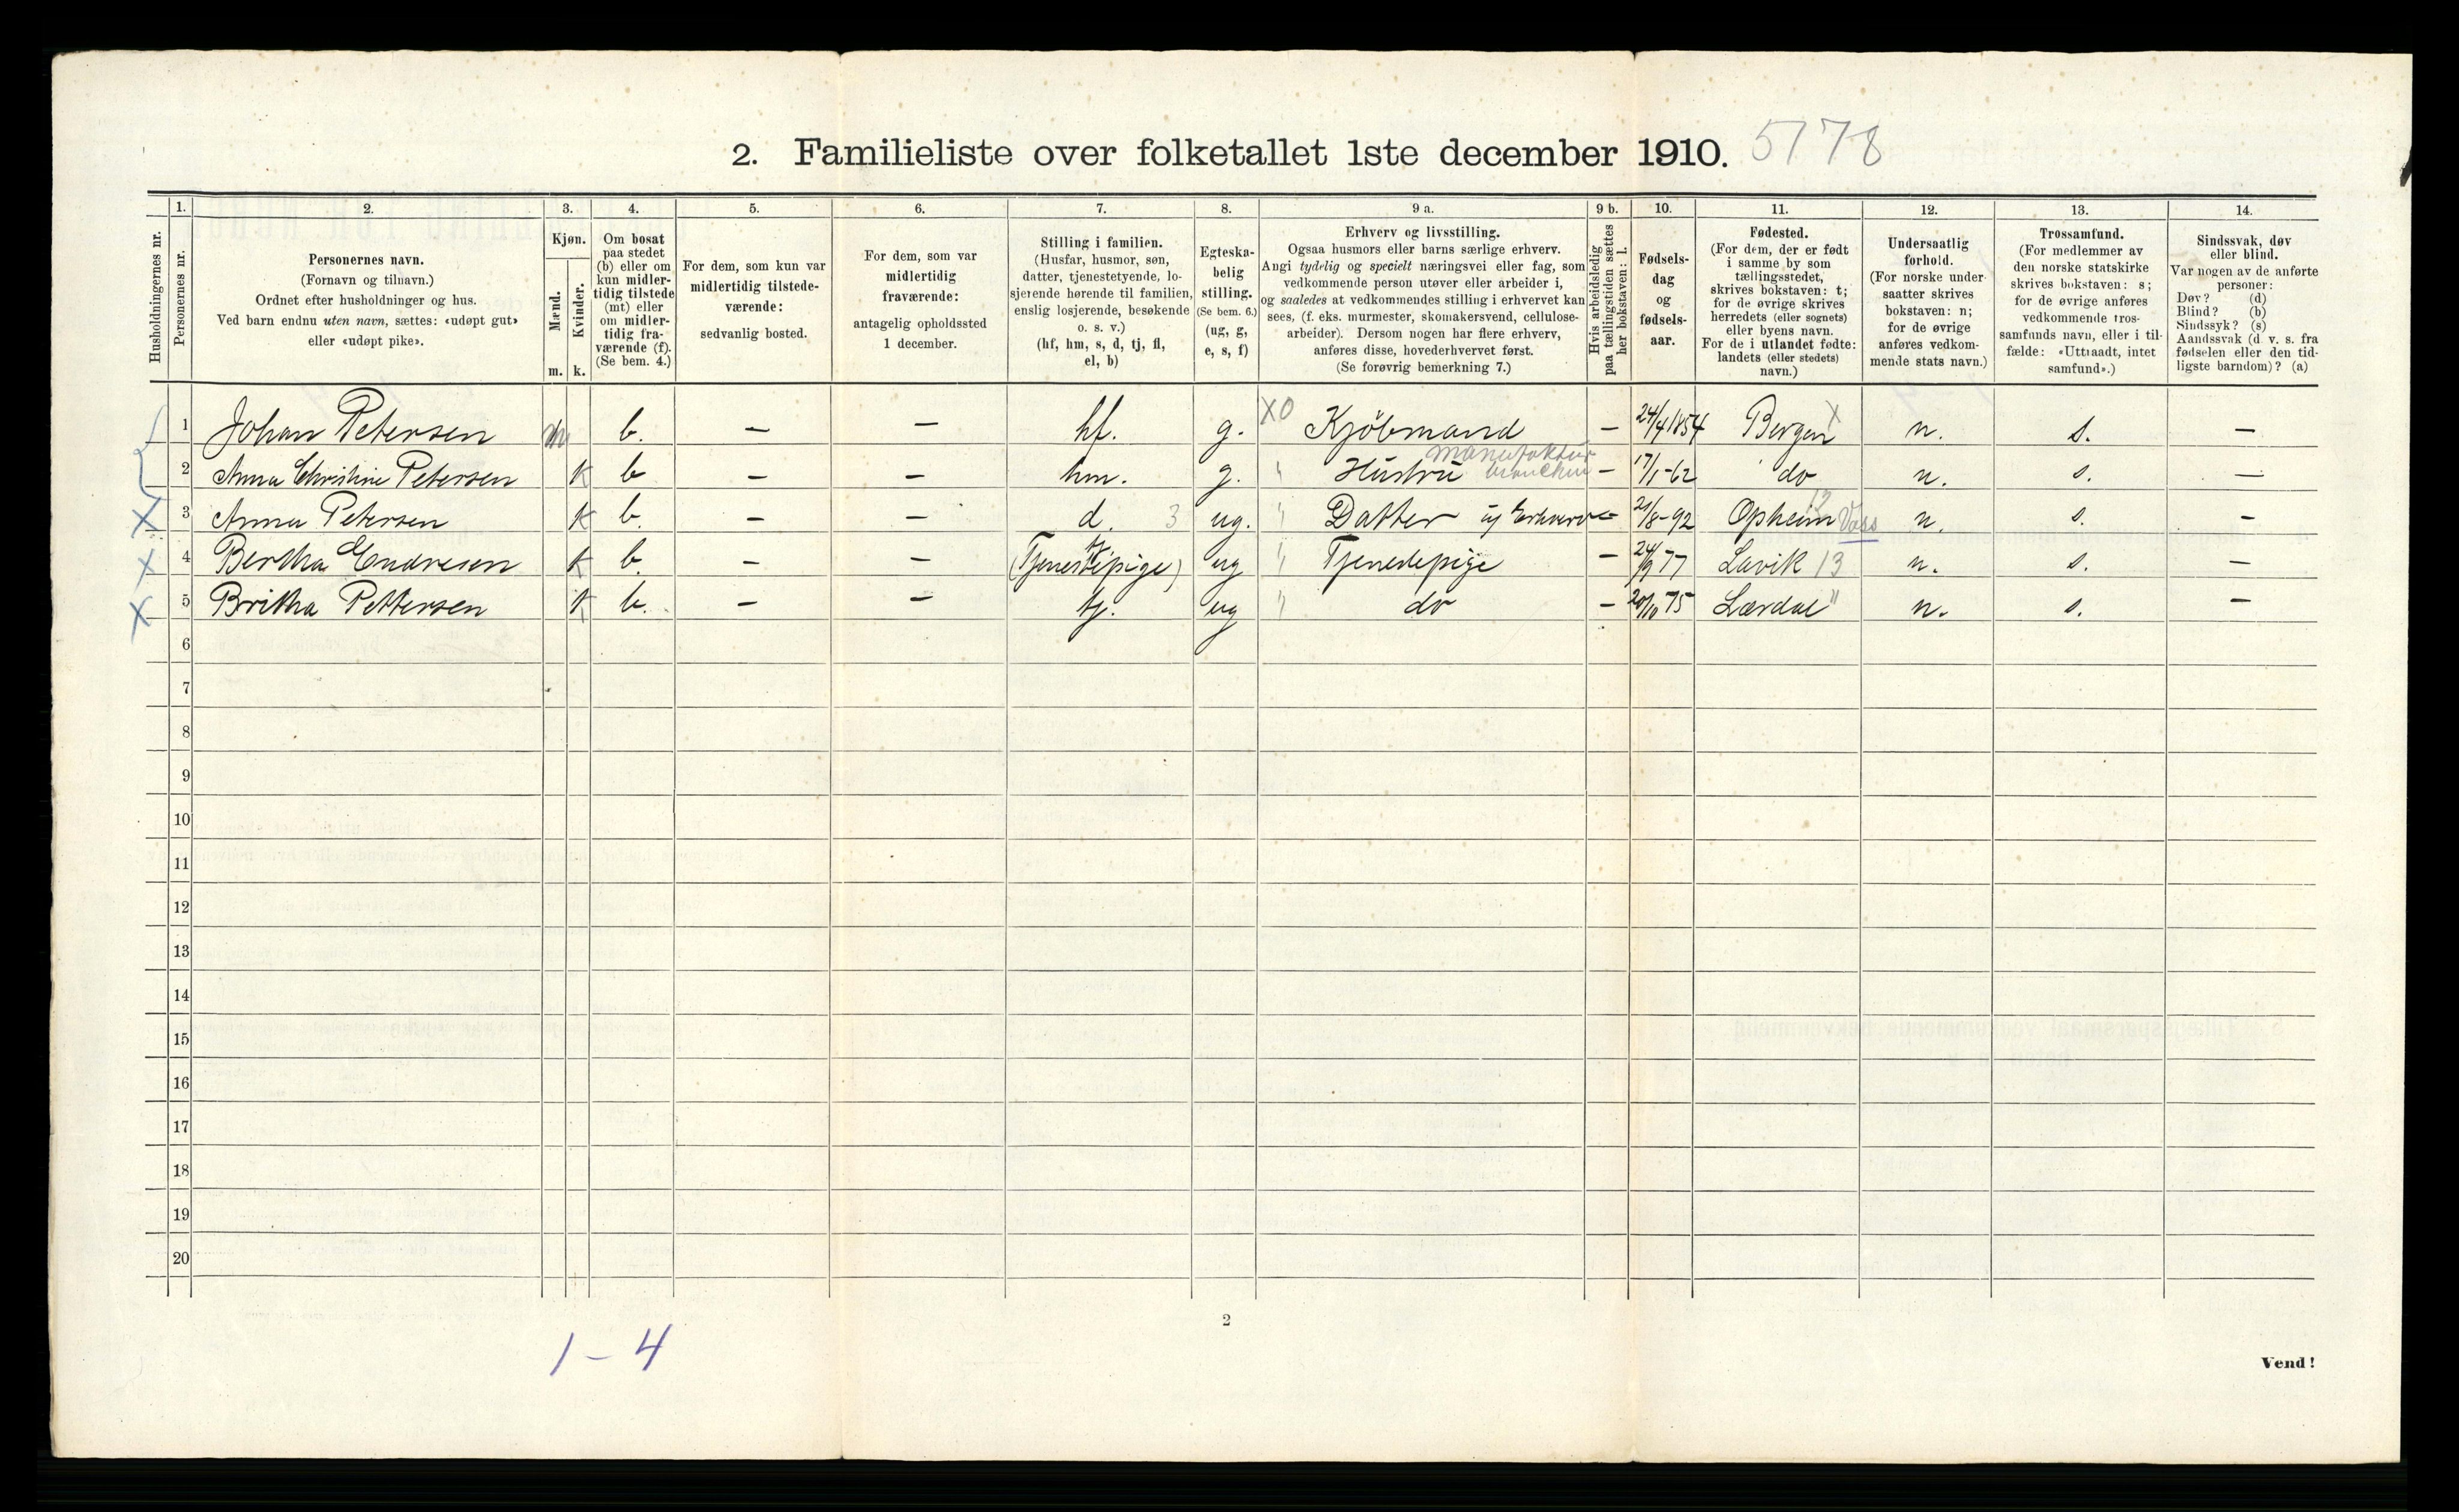 2. Familieliste over folketallet 1ste december 1910. 5178
Husholdningernes nr.
1.
Personernes nr.
2.
Personernes navn.
(Fornavn og tilnavn.)
Ordnet efter husholdninger og hus.
Ved barn endnu uten navn, sættes: «udøpt gut»
eller «udøpt pike».
3.
Kjøn.
Mænd.
Kvinder.
m. k.
4.
Om bosat
paa stedet
(b) eller om
kun midler-
tidig tilstede
(mt) eller
om midler-
tidig fra-
værende (f).
(Se bem. 4.)
5.
For dem, som kun var
midlertidig tilstede-
værende:
sedvanlig bosted.
6.
For dem, som var
midlertidig
fraværende:
antagelig opholdssted
1 december.
7.
Stilling i familien.
(Husfar, husmor, søn,
datter, tjenestetyende, lo-
sjerende hørende til familien,
enslig losjerende, besøkende
o. s. v.)
(hf, hm, s, d, tj, fl,
el, b)
8.
Egteska-
belig
stilling.
(Se bem. 6.)
(ug, g,
e, s, f)
9 a.
Erhverv og livsstilling.
Ogsaa husmors eller barns særlige erhverv.
Angi tydelig og specielt næringsvei eller fag, som
vedkommende person utøver eller arbeider i,
og saaledes at vedkommendes stilling i erhvervet kan
sees, (f. eks. murmester, skomakersvend, cellulose-
arbeider). Dersom nogen har flere erhverv,
anføres disse, hovederhvervet først.
(Se forøvrig bemerkning 7.)
9 b.
Hvis arbeidsledig
paa tællingstiden sættes
her bokstaven: l.
10.
Fødsels-
dag
og
fødsels-
aar.
11.
Fødested.
(For dem, der er født
i samme by som
tællingsstedet,
skrives bokstaven: t;
for de øvrige skrives
herredets (eller sognets)
eller byens navn.
For de i utlandet fødte:
landets (eller stedets)
navn.)
12.
Undersaatlig
forhold.
(For norske under-
saatter skrives
bokstaven: n;
for de øvrige
anføres vedkom-
mende stats navn.)
13.
Trossamfund.
(For medlemmer av
den norske statskirke
skrives bokstaven: s;
for de øvrige anføres
vedkommende tros-
samfunds navn, eller i til-
fælde: «Uttraadt, intet
samfund».)
14.
Sindssvak, døv
eller blind.
Var nogen av de anførte
personer:
Døv? (d)
Blind? (b)
Sindssyk? (s)
Aandssvak (d. v. s. fra
fødselen eller den tid-
ligste barndom)? (a)
1 Johan Petersen m b. — — hf. g. XO Kjöbmand — 24/4 1854 Bergen X n. s. —
manufaktur
2 Anna Christine Petersen K b — — hm. g. " Hustru branchen — 17/1-62 do n. s. —
X 3 Anna Petersen K b. — — d. 3 ug. " Datter — 21/8-92 Opheim 12 Voss n. s. —
X 4 Bertha Endresen K b. — — tj (Tjenestepige) ug " Tjenestepige — 24/9 77 Lavik 13 n. s. —
X 5 Britha Pettersen K b. — — tj. ug " do — 20/10 75 Lærdal " n. s. —
6
7
8
9
10
11
12
13
14
15
16
17
18
19
20
2
1 - 4
Vend!